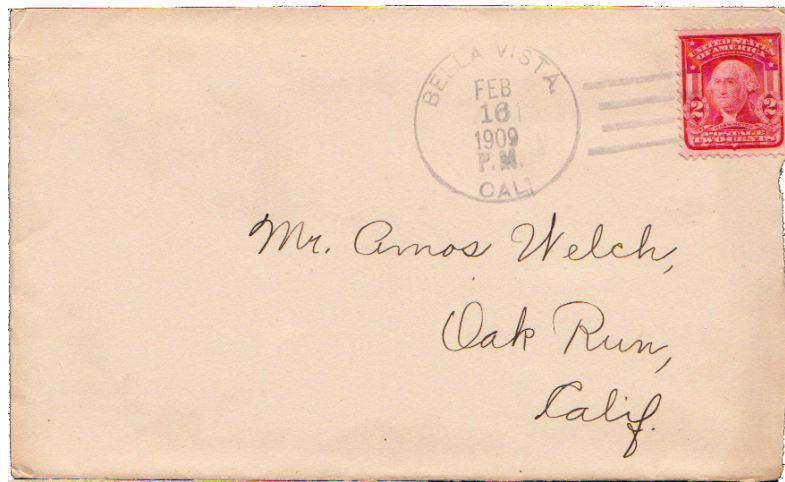 BELLA VISTA,
FEB
16
1909
P.M.
CAL.
UNITED STATES
OF AMERICA
2 2
POSTAGE
TWO CENTS
Mr. Amos Welch,
Oak Run,
Calif.